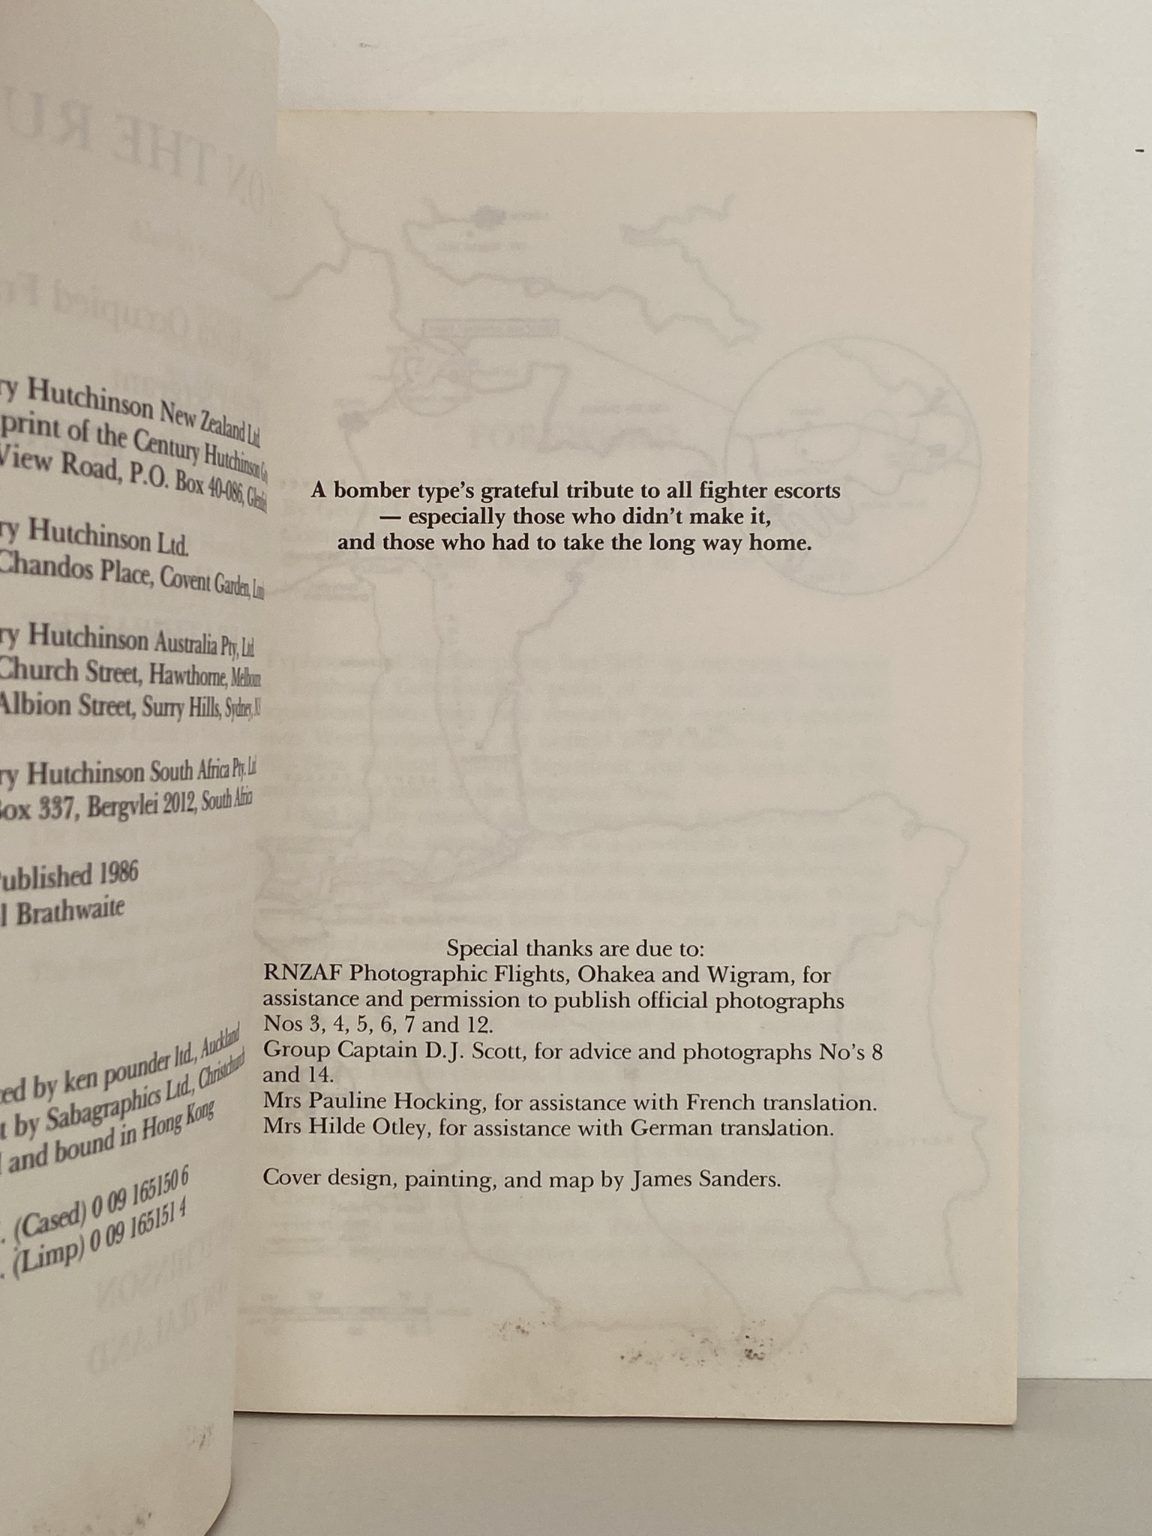 Hutchinson New Zealand Ltd
print of the Century Hutchinson
View Road, P.O. Box 40-086,
Hutchinson Ltd.
Chandos Place, Covent Garden,
Hutchinson Australia Pty, Ltd
Church Street, Hawthorne,
Albion Street, Surry Hills, Sydney,
Hutchinson South Africa Pty. Ltd
337, Bergvlei 2012, South Africa
ublished 1986
Brathwaite
ed by ken pounder ltd., Auckland
by Sabagraphics Ltd., Christchurch
and bound in Hong Kong
(Cased) 0 09 165150 6
(Limp) 0 09 165151 4
A bomber type's grateful tribute to all fighter escorts
— especially those who didn't make it,
and those who had to take the long way home.
Special thanks are due to:
RNZAF Photographic Flights, Ohakea and Wigram, for
assistance and permission to publish official photographs
Nos 3, 4, 5, 6, 7 and 12.
Group Captain D.J. Scott, for advice and photographs No's 8
and 14.
Mrs Pauline Hocking, for assistance with French translation.
Mrs Hilde Otley, for assistance with German translation.
Cover design, painting, and map by James Sanders.